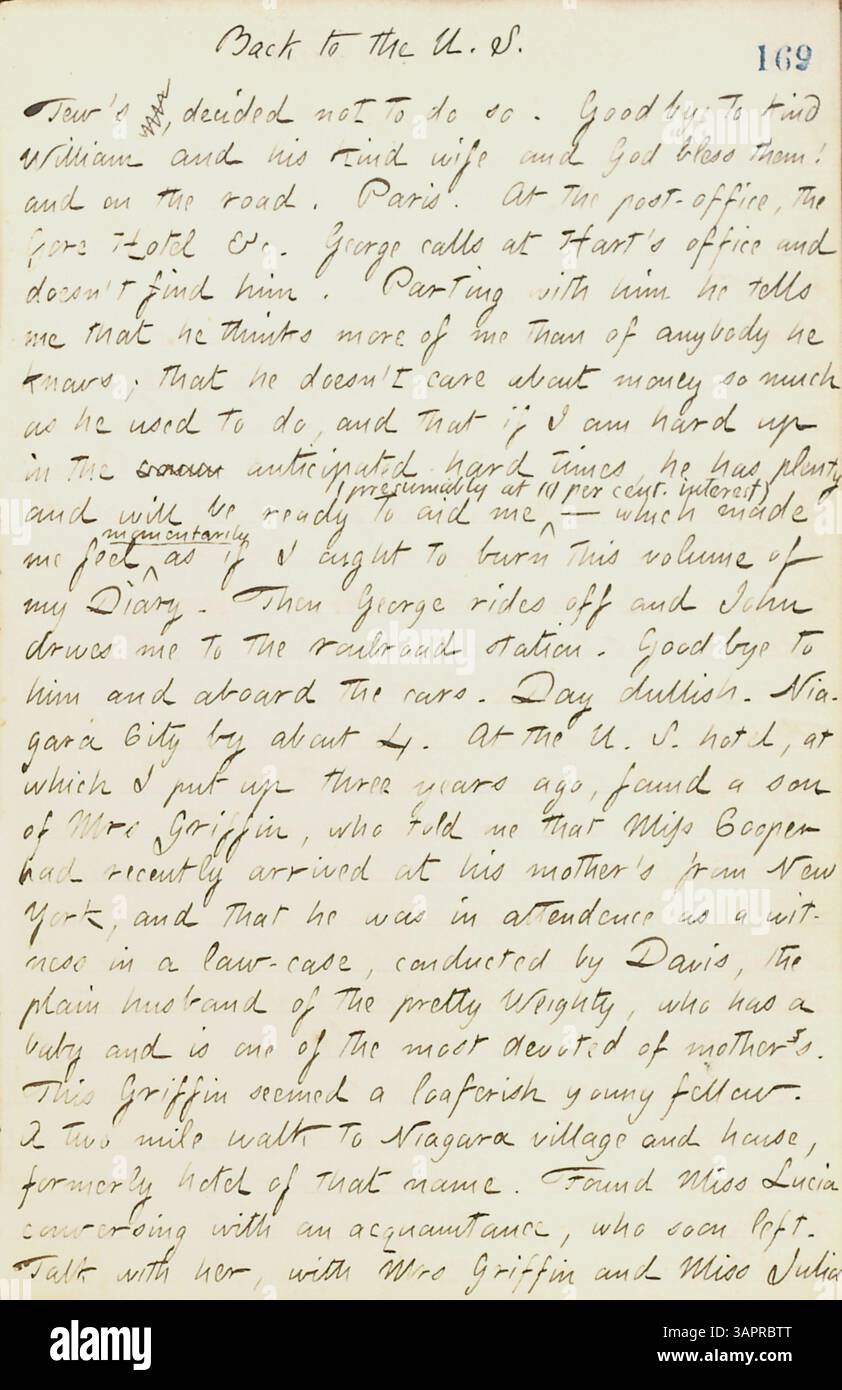 Back to the U. S.
169
Tew's, decided not to do so. Good bye to kind
William and his kind wife and God bless them!
and on the road. Paris. At the post-office, the
Gore Hotel &c. George calls at Hart's office and
doesn't find him. Parting with him he tells
me that he thinks more of me than of anybody he
knows; that he doesn't care about money so much
as he used to do, and that if I am hard up
in the anticipated hard times, he has plenty
(presumably at 10 per cent. interest)
and will be ready to aid me — which made
momentarily
me feel as if I ought to burn this volume of
my Diary. Then George rides off and John
drives me to the railroad station. Good bye to
him and aboard the cars. Day dullish. Nia-
gara City by about 4. At the U. S. hotel, at
which I put up three years ago, found a son
of Mrs Griffin, who told me that Miss Cooper
had recently arrived at his mother's from New
York, and that he was in attendence as a wit-
ness in a law-case, conducted by Davis, the
plain husband of the pretty Weighty, who has a
baby and is one of the most devoted of mothers.
This Griffin seemed a loaferish young fellow.
A two mile walk to Niagara village and house,
formerly hotel of that name. Found Miss Lucia
conversing with an acquaintance, who soon left.
Talk with her, with Mrs Griffin and Miss Julia
alamy
Image ID: 3APRBTT
www.alamy.com